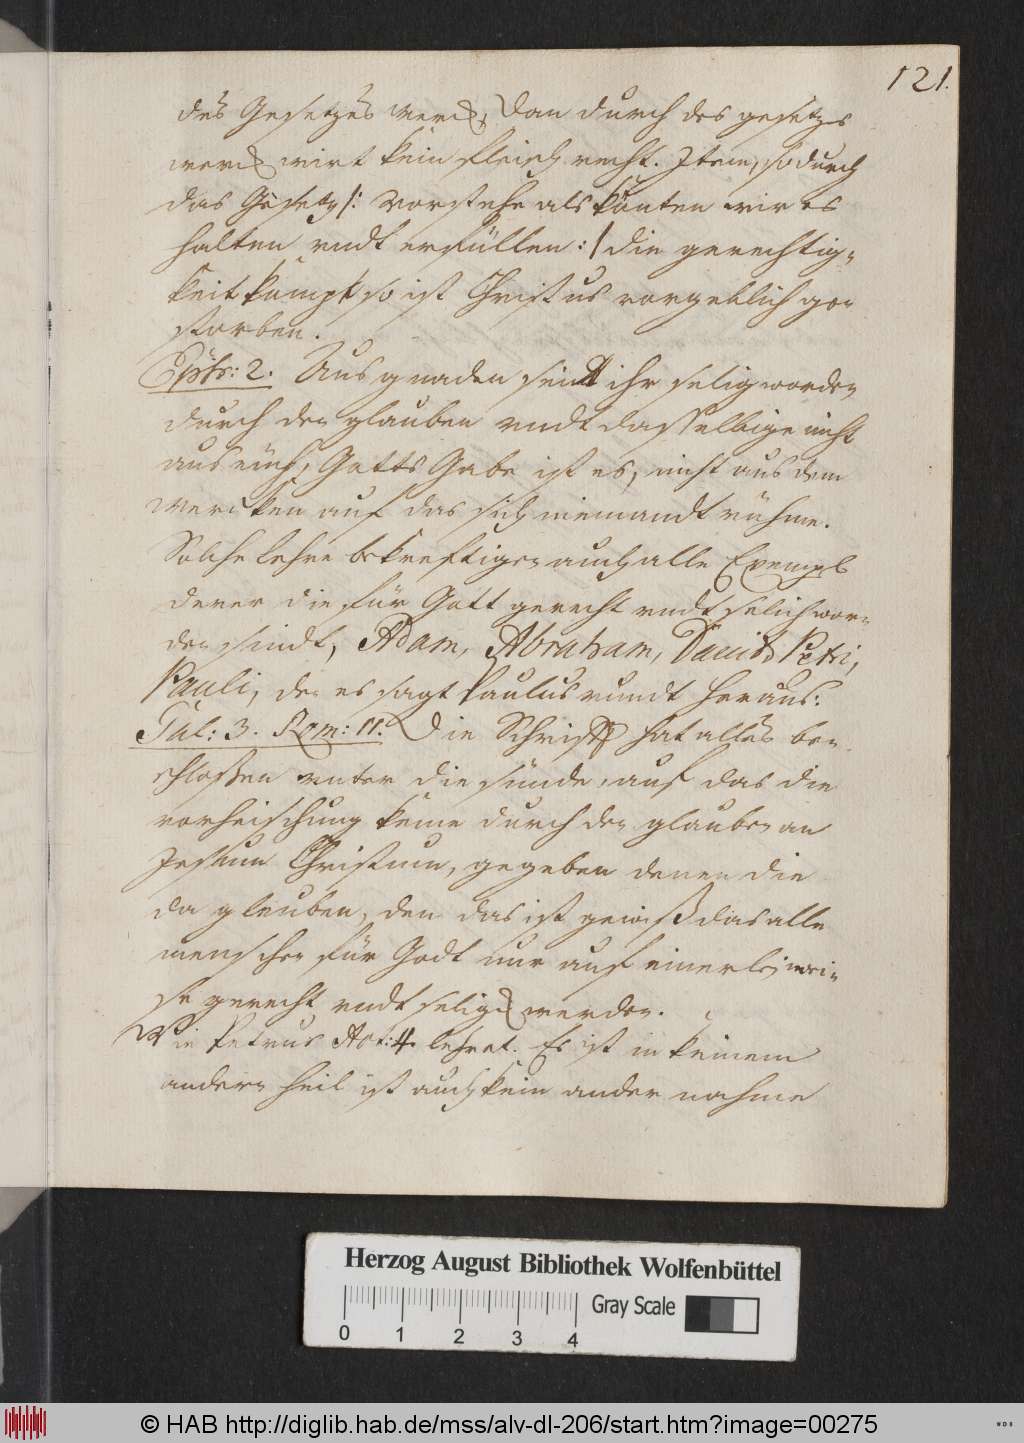 121.
des Gesetzes werck, Dan durch des gesetzes
werck wirt kein fleisch recht. Item, so durch
das Gesetz /: vorstehe als könten wir es
halten undt erfüllen :/ die gerechtig-
keit kumpt so ist Christus vorgeblich ge-
storben.
Ephes: 2. Aus gnaden seidt ihr selig worden
durch den glauben undt dasselbige nicht
aus euch, Gotts Gabe ist es, nicht aus dem
wercken auf das sich niemandt rühme.
Solche lehre bekreftigen auch alle Exempel
derer die für Gott gerecht undt selich wor-
den sindt, Adam, Abraham, Dauid, Petri,
Pauli, den es sagt Paulus rundt heraus:
Gal: 3. Rom: 11. Die Schrifft hat alles be-
schlossen unter die sünde, auf das die
vorheischung keme durch den glauben an
Jesum Christum, gegeben denen die
da gleuben, den das ist gewiß das alle
menschen für Godt nur auf einerlei wei-
se gerecht undt selig werden.
Wie Petrus Act: 4. lehret. Es ist in keinem
andern heil ist auch kein ander nahme
Herzog August Bibliothek Wolfenbüttel
Gray Scale
0 1 2 3 4
© HAB http://diglib.hab.de/mss/alv-dl-206/start.htm?image=00275